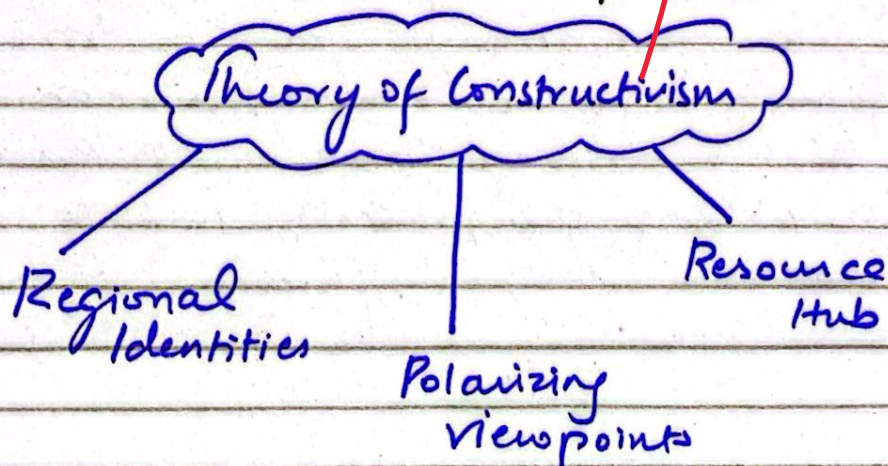 Theory of Constructivism
Regional
Identities
Polarizing
Viewpoints
Resource
Hub